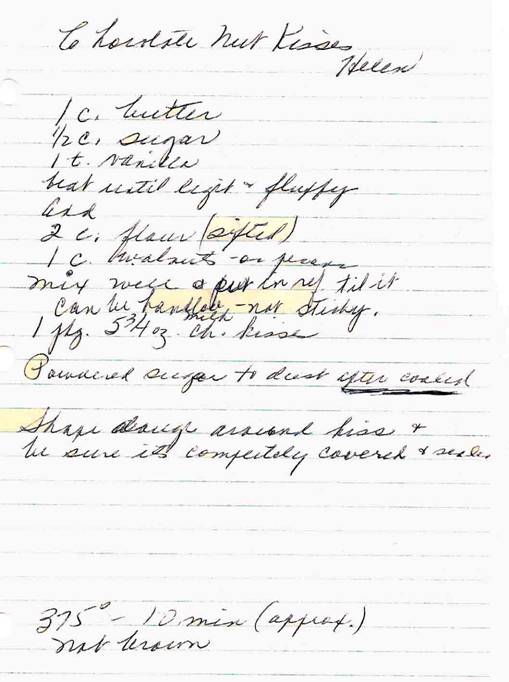 Chocolate Nut Kisses
Helen
1 c. butter
1/2 c. sugar
1 t. vanilla
beat until light & fluffy
add
2 c. flour (sifted)
1 c. walnuts or pecans
mix well & put in ref. til it
can be handled - not sticky.
1 pkg. 5 3/4 oz. milk ch. kisses
Powdered sugar to dust after cooled
Shape dough around kiss &
be sure its completely covered & sealed
375° - 10 min (approx.)
not brown